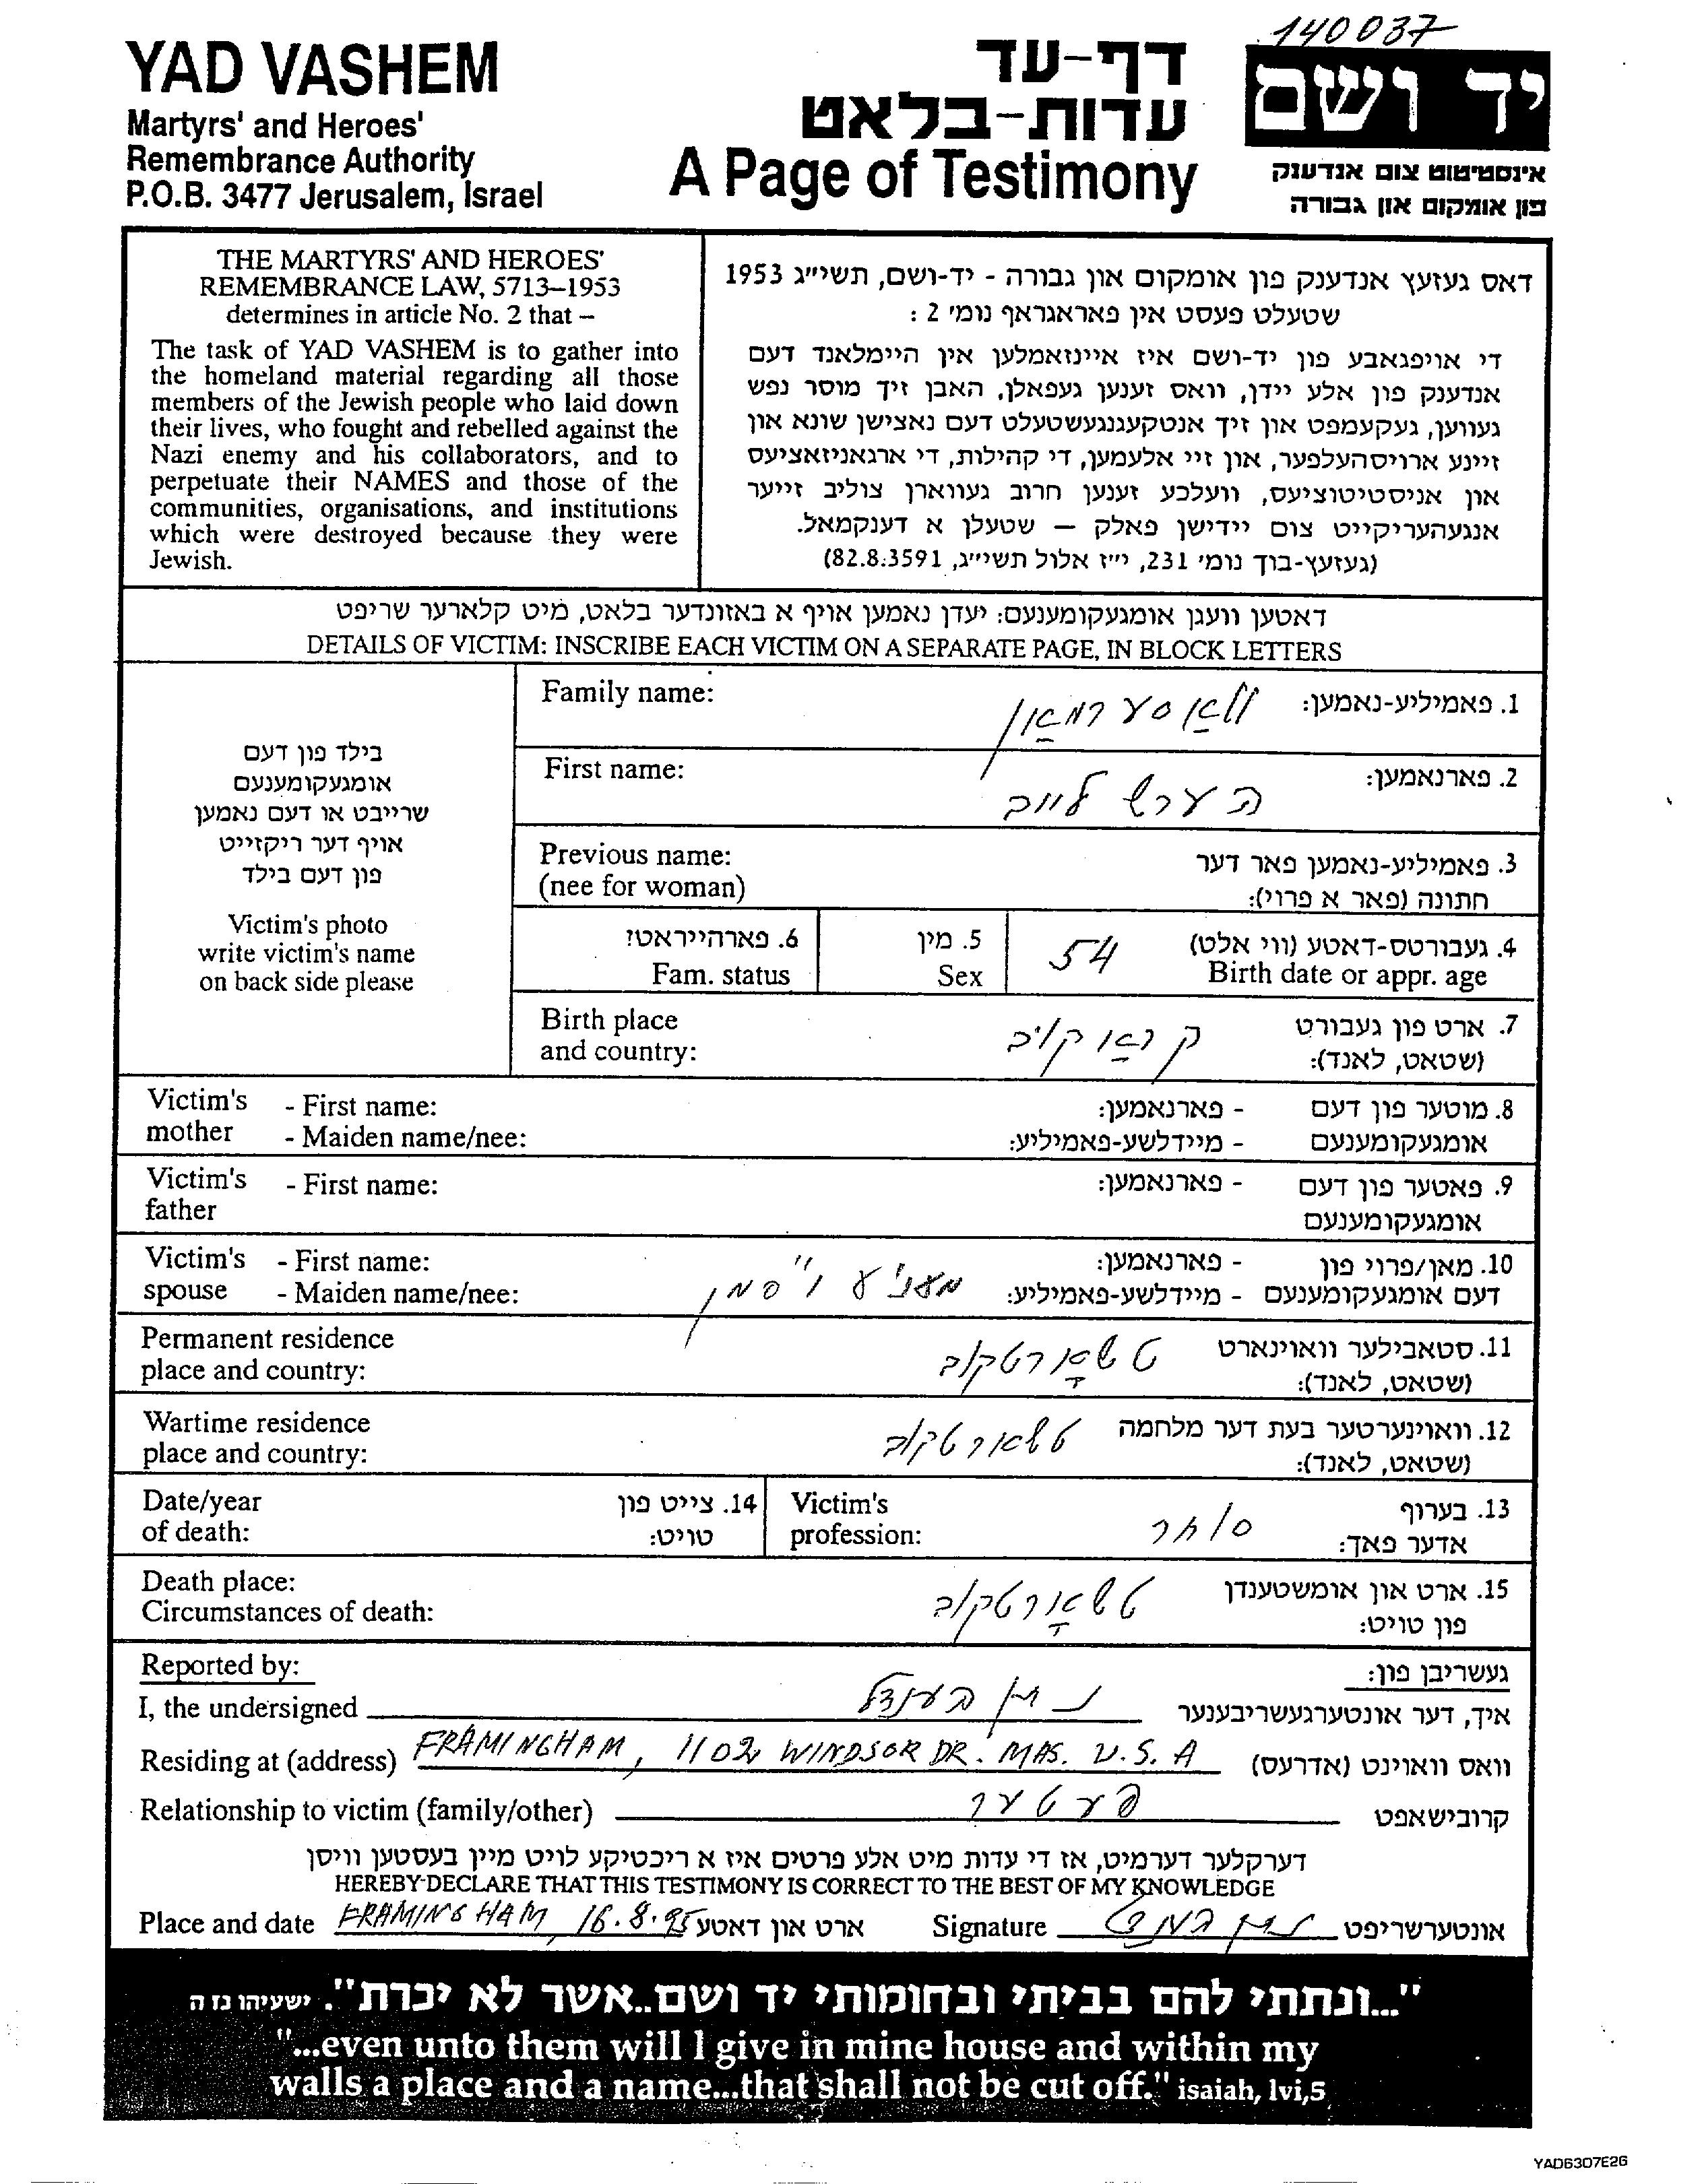 140037
YAD VASHEM
Martyrs' and Heroes'
Remembrance Authority
P.O.B. 3477 Jerusalem, Israel
דף-עד
עדות-בלאט
A Page of Testimony
יד ושם
אינסטיטוט צום אנדענק
פון אומקום און גבורה
THE MARTYRS' AND HEROES'
REMEMBRANCE LAW, 5713–1953
determines in article No. 2 that –
The task of YAD VASHEM is to gather into
the homeland material regarding all those
members of the Jewish people who laid down
their lives, who fought and rebelled against the
Nazi enemy and his collaborators, and to
perpetuate their NAMES and those of the
communities, organisations, and institutions
which were destroyed because they were
Jewish.
דאס געזעץ אנדענק פון אומקום און גבורה - יד-ושם, תשי״ג 1953
שטעלט פעסט אין פאראגראף נומ׳ 2 :
די אויפגאבע פון יד-ושם איז איינזאמלען אין היימלאנד דעם
אנדענק פון אלע יידן, וואס זענען געפאלן, האבן זיך מוסר נפש
געווען, געקעמפט און זיך אנטקעגנגעשטעלט דעם נאצישן שונא און
זיינע ארויסהעלפער, און זיי אלעמען, די קהילות, די ארגאניזאציעס
און אניסטיטוציעס, וועלכע זענען חרוב געווארן צוליב זייער
אנגעהעריקייט צום יידישן פאלק — שטעלן א דענקמאל.
(געזעץ-בוך נומ׳ 231, י״ז אלול תשי״ג, 82.8.3591)
דאטען וועגן אומגעקומענעם: יעדן נאמען אויף א באזונדער בלאט, מיט קלארער שריפט
DETAILS OF VICTIM: INSCRIBE EACH VICTIM ON A SEPARATE PAGE, IN BLOCK LETTERS
בילד פון דעם
אומגעקומענעם
שרייבט או דעם נאמען
אויף דער ריקזייט
פון דעם בילד
Victim's photo
write victim's name
on back side please
Family name: וואַסערמאַן 1. פאמיליע-נאמען:
First name: הערש לייב 2. פארנאמען:
Previous name:
(nee for woman)
3. פאמיליע-נאמען פאר דער
חתונה (פאר א פרוי):
6. פארהייראט?
Fam. status
5. מין
Sex
54
4. געבורטס-דאטע (ווי אלט)
Birth date or appr. age
Birth place
and country:
קראַקיב
7. ארט פון געבורט
(שטאט, לאנד):
Victim's mother
- First name: - פארנאמען:
- Maiden name/nee: - מיידלשע-פאמיליע:
8. מוטער פון דעם
אומגעקומענעם
Victim's father
- First name: - פארנאמען:
9. פאטער פון דעם
אומגעקומענעם
Victim's spouse
- First name: - פארנאמען:
- Maiden name/nee: - מיידלשע-פאמיליע:
10. מאן/פרוי פון
דעם אומגעקומענעם
Permanent residence
place and country:
טשאָרטקוב
11. סטאבילער וואוינארט
(שטאט, לאנד):
Wartime residence
place and country:
טשארטקוב
12. וואוינערטער בעת דער מלחמה
(שטאט, לאנד):
Date/year
of death:
14. צייט פון
טויט:
Victim's
profession:
סוחר
13. בערוף
אדער פאך:
Death place:
Circumstances of death:
טשאָרטקוב
15. ארט און אומשטענדן
פון טויט:
Reported by: געשריבן פון:
I, the undersigned איך, דער אונטערגעשריבענער
Residing at (address) FRAMINGHAM, 1102 WINDSOR DR. MAS. U.S.A וואס וואוינט (אדרעס)
Relationship to victim (family/other) פעטער קרובישאפט
דערקלער דערמיט, אז די עדות מיט אלע פרטים איז א ריכטיקע לויט מיין בעסטען וויסן
HEREBY DECLARE THAT THIS TESTIMONY IS CORRECT TO THE BEST OF MY KNOWLEDGE
Place and date FRAMINGHAM, 16.8.95 ארט און דאטע Signature אונטערשריפט
"...ונתתי להם בביתי ובחומותי יד ושם..אשר לא יכרת". ישעיהו נז ה
"...even unto them will I give in mine house and within my
walls a place and a name...that shall not be cut off." isaiah, lvi,5
YAD6307E26